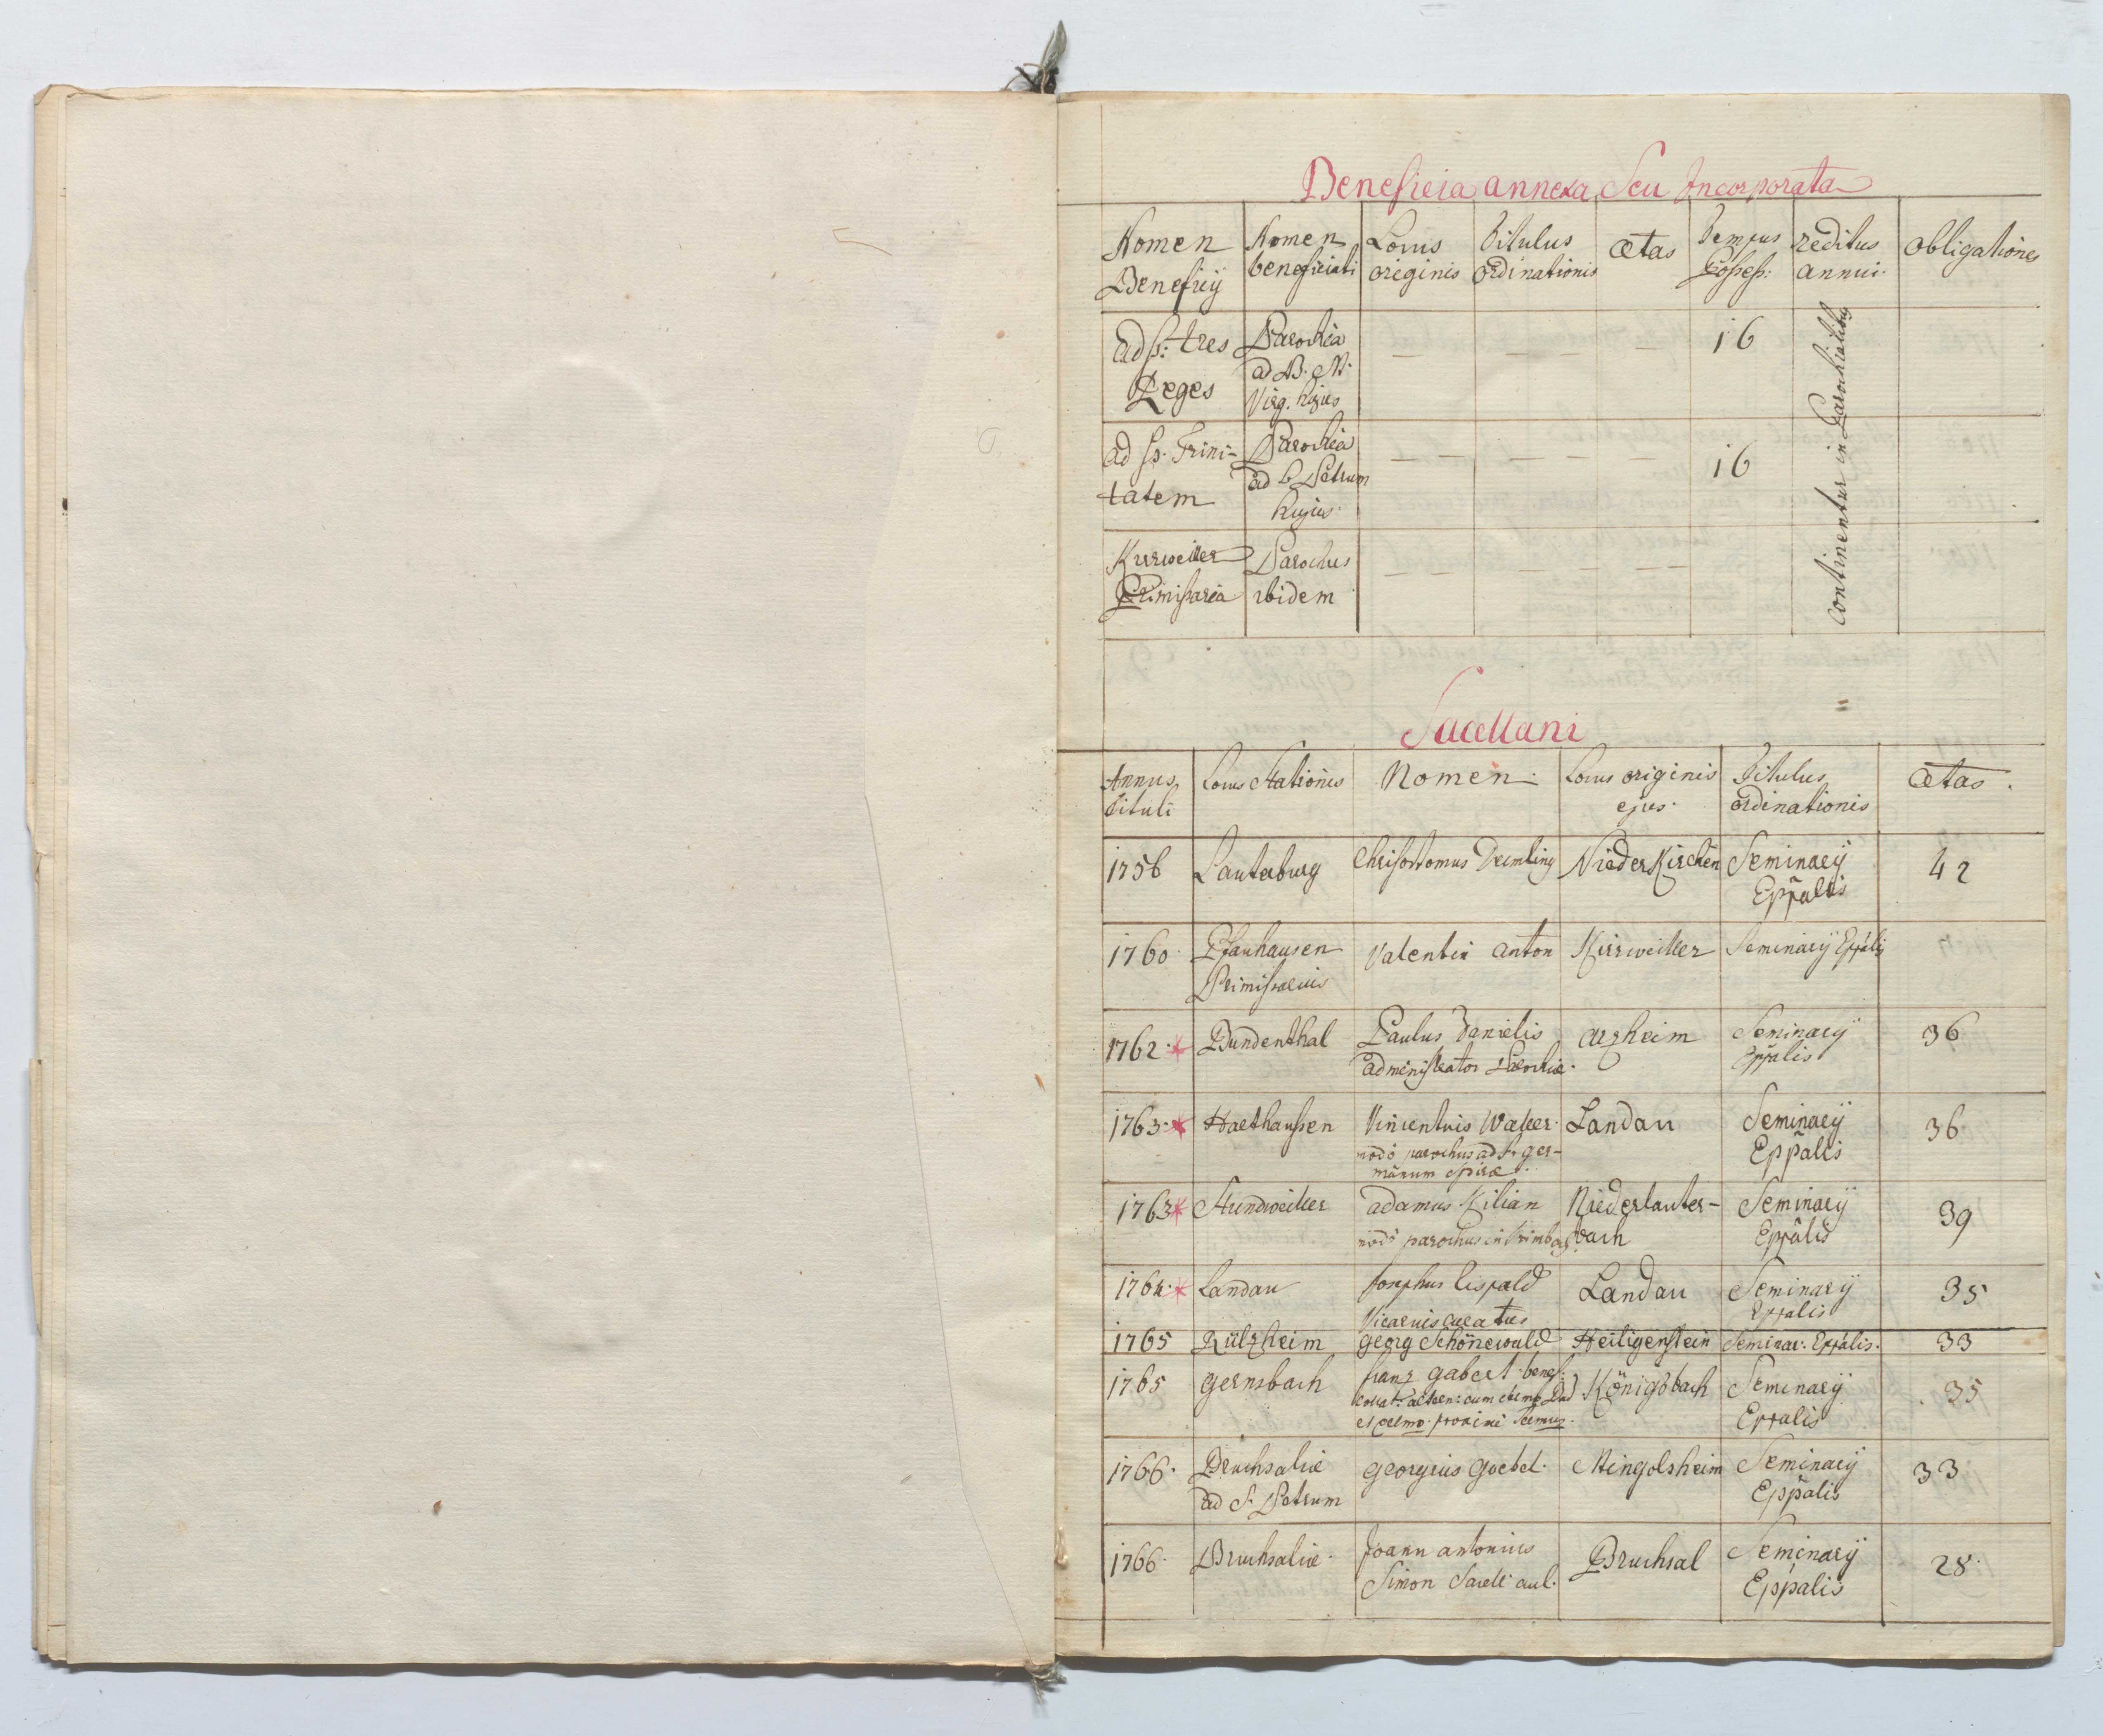 Beneficia annexa Seu Incorporata
Nomen Beneficÿ | Nomen beneficiati | Locus originis | Titulus ordinationis | ætas | Tempus Possess: | reditus annui. | obligationes
ad ss: tres Reges | Parochia ad B. M. Virg. hujus | — — | — — | — | 16 | Continentur in Parochialibus
ad ss. Trini-tatem | Parochia ad S. Petrum hujus. | — — | — — | — | 16
Kirrweiller Primissaria | Parochus ibidem | — — | — — | — —
Sacellani
Annus tituli | Locus Stationis | Nomen. | Locus originis ejus. | Titulus ordinationis | ætas.
1756 | Lauterburg | Chrisostomus Deimling | Niederkirchen | Seminarÿ Eppalis | 42
1760. | Pfauhausen Primissarius | Valentin anton | Kirrweiller | Seminarÿ Eppalis
1762. * | Bundenthal | Paulus Danielis administrator Parochiæ. | arzheim | Seminarÿ Eppalis | 36
1763. * | Harthausen | Vincentius Walter. modo parochus ad S. ger-manum Spiræ. | Landau | Seminarÿ Eppalis | 36
1763 * | Stundweiller | adamus Kilian modo parochus in | Niederlauter-bach | Seminarÿ Eppalis | 39
1764. * | Landau | Josephus Vicarius curatus | Landau | Seminarÿ Eppalis | 35
1765 | Rülzheim | Georg Schönewald | Heiligenstein | Seminar: Eppalis. | 33
1765 | gernsbach | franz gabert benef: | Königsbach | Seminarÿ Eppalis | 35
1766. | Bruchsaliæ ad S. Petrum | Georgius Goebel. | Mingolsheim | Seminarÿ Eppalis | 33
1766. | Bruchsaliæ. | Joann antonius Simon Sacell: aul. | Bruchsal | Seminarÿ Eppalis | 28.